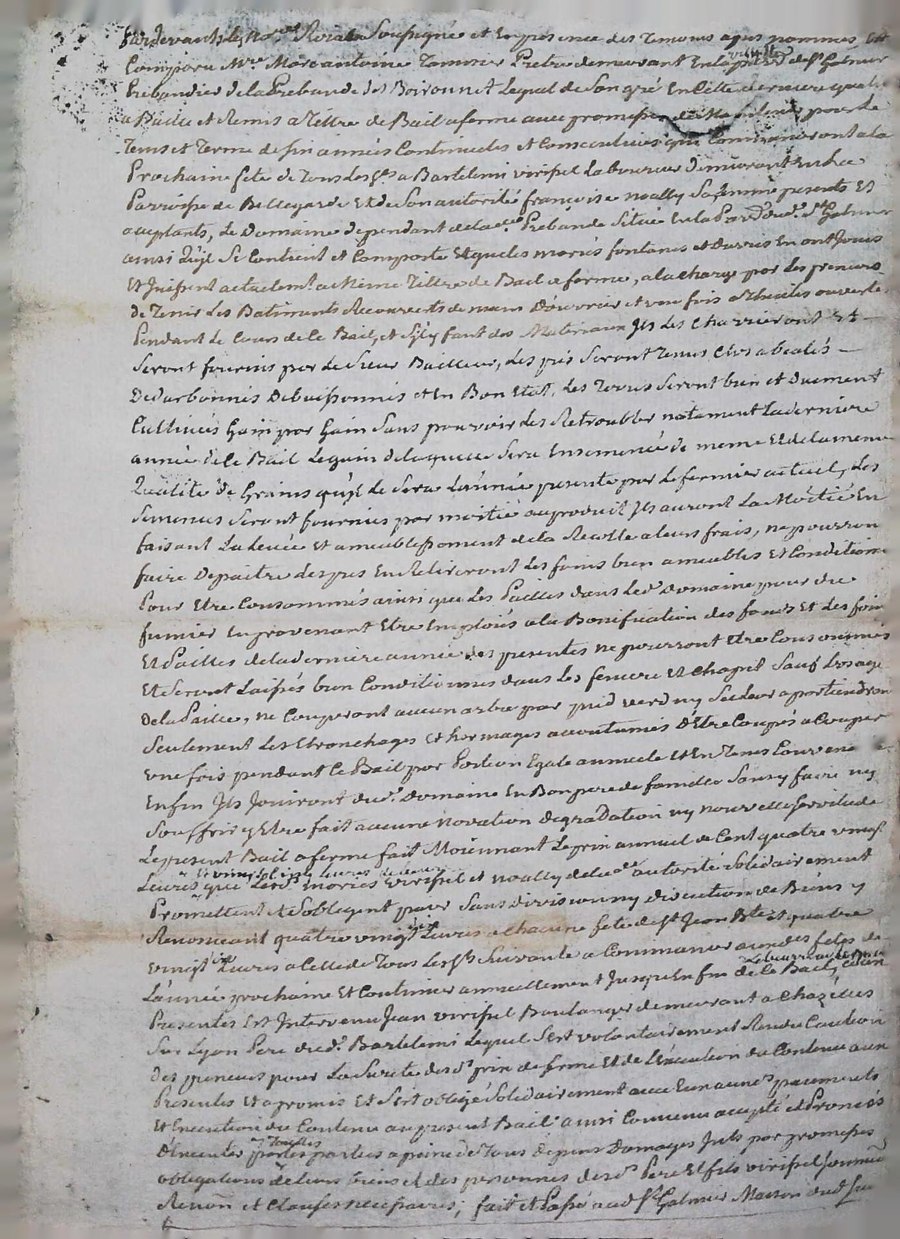 Pardevant le No.re Roial Soussigné et En présence des Temoins apres nommés Est
Comparu M.re Marcantoine Pretre demeurant En la ville de S.t Galmier
Prebandier de la Prebande des Boironnet Lequel de Son gré En Cette derniere qualité
a Baillé et Remis a Tiltre de Bail a ferme avec promesse pour le
Tems et Terme de six années Continuelles et Consecutives qui Commenceront a la
Prochaine fete de Tous Les S.ts a Bartelemi virissel Laboureur Demeurant En La
Parroisse de Bellegarde Et de Son autorité françoise noally Sa femme presents Et
acceptants, Le Domaine dependant de la d.e Prebande Situé En la Par.sse du d. S.t Galmier
ainsi qu'il Se Contient et Comporte Et que les mariés fontanes et En ont Jouis
Et Jouissent actuelem.t a Même Tiltre de Bail a ferme, a la charge par Les preneurs
de Tenir Les Batiments Recouverts de main D'ouvrier et une fois a Thuiles ouvertes
Pendant Le Cours de Ce Bail, et S'il y faut des Materiaux Ils Les Charrieront Et
Seront fournis par le Sieur Bailleur, Les prés Seront Tenus Clos abealés
Dezarbonnés Debuissonnés et En Bon Etat, Les Terres Seront bien et Duement
Cultivées Gain par Gain Sans pouvoir Les Retroubler notament La derniere
année de Ce Bail Le guin de laquelle Sera Ensemencé de meme Et de la meme
Qualité de Grains qu'il Le Sera L'année presente par Le fermier actuel, Les
Semences Seront fournies par moitié au produit Ils auront La Moitié En
faisant La Levée Et ameublissement de la Recolte a leurs frais, ne pourront
faire Depaitre des prés En Retireront Les foins bien ameublés Et Conditionnés
Pour Etre Consommés ainsi que Les Pailles dans Led. Domaine pour du
fumier En provenant Etre Emploiés a la Bonification des fonds Et Les foins
Et Pailles de la derniere année des presentes ne pourront Etre Consommés
Et Seront Laissés bien Conditionnés dans Les feniere Et Chapit Sauf L'usage
De la Paille, ne Couperont aucun arbre par pied verd ny Sec Leur apartiendront
Seulement Les Etronchages Et hormages accoutumés D'Etre Coupés a Couper
une fois pendant Ce Bail par Portion Egale annuele Et En Tems Convenable
Enfin Ils Jouiront du d. Domaine En Bon pere de famille Sans y faire ny
Souffrir y Etre fait aucune novation degradation ny nouvelle Servitude
Le present Bail a ferme fait Moiennant Le prix annuel de Cent quatre vingt
Livres que Lesd. mariés virissel et noally de lad.e autorité Solidairement
Promettent et S'obligent paier Sans Division ny discution de Biens y
Renonceant quatre vingt Livres a Chacune fete de S.t Jean B.te et quatre
vingt Livres a Celle de Tous Les S.ts Suivante a Commancer auxdes fetes de
L'année prochaine Et Continuer annuellement Jusqu'En fin de Ce Bail,
Presentes Est Intervenu Jean virissel Boulanger demeurant a Chazelles
Sur Lyon Pere dud. Bartelemi Lequel S'est volontairement Rendu Caution
des preneurs pour La Sureté desd. prix de ferme Et de L'Execution du Contenu aux
Presentes Et a promis Et S'est obligé Solidairement avec Eux aux d. paiements
Et Execution du Contenu au present Bail ainsi Convenu accepté et Promis
D'Executer par les parties a peine de Tous depens Domages Intts par promesses
obligations de leurs biens et des personnes desd. Pere Et fils virissel Soumis.
Renon. et Clauses necessaires; fait et Passé aud. S.t Galmier Maison dud. Sieur